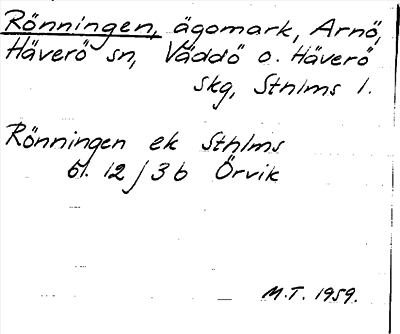 Rönningen, ägomark, Arnö,
Häverö sn, Väddö o. Häverö
skg, Sthlms l.
Rönningen ek Sthlms
bl. 12 / 3 b Örvik
M.T. 1959.